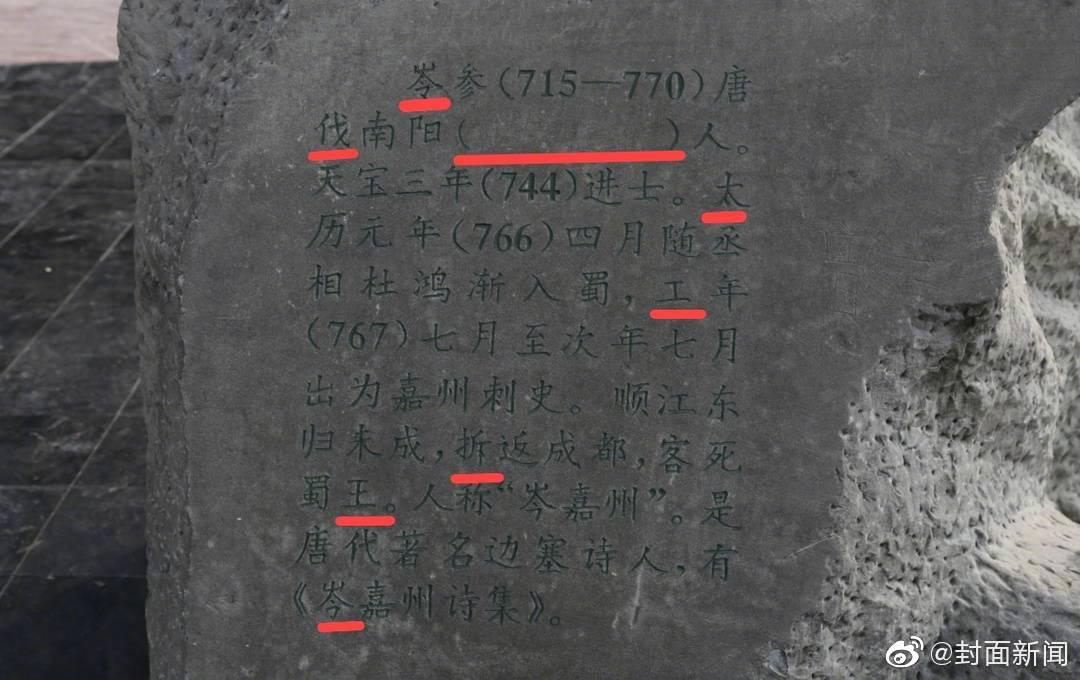 岺参(715—770)唐
伐南阳(　　　　)人。
天宝三年(744)进士。太
历元年(766)四月随丞
相杜鸿渐入蜀,工年
(767)七月至次年七月
出为嘉州刺史。顺江东
归未成,拆返成都,客死
蜀王。人称“岑嘉州”。是
唐代著名边塞诗人,有
《岑嘉州诗集》。
@封面新闻